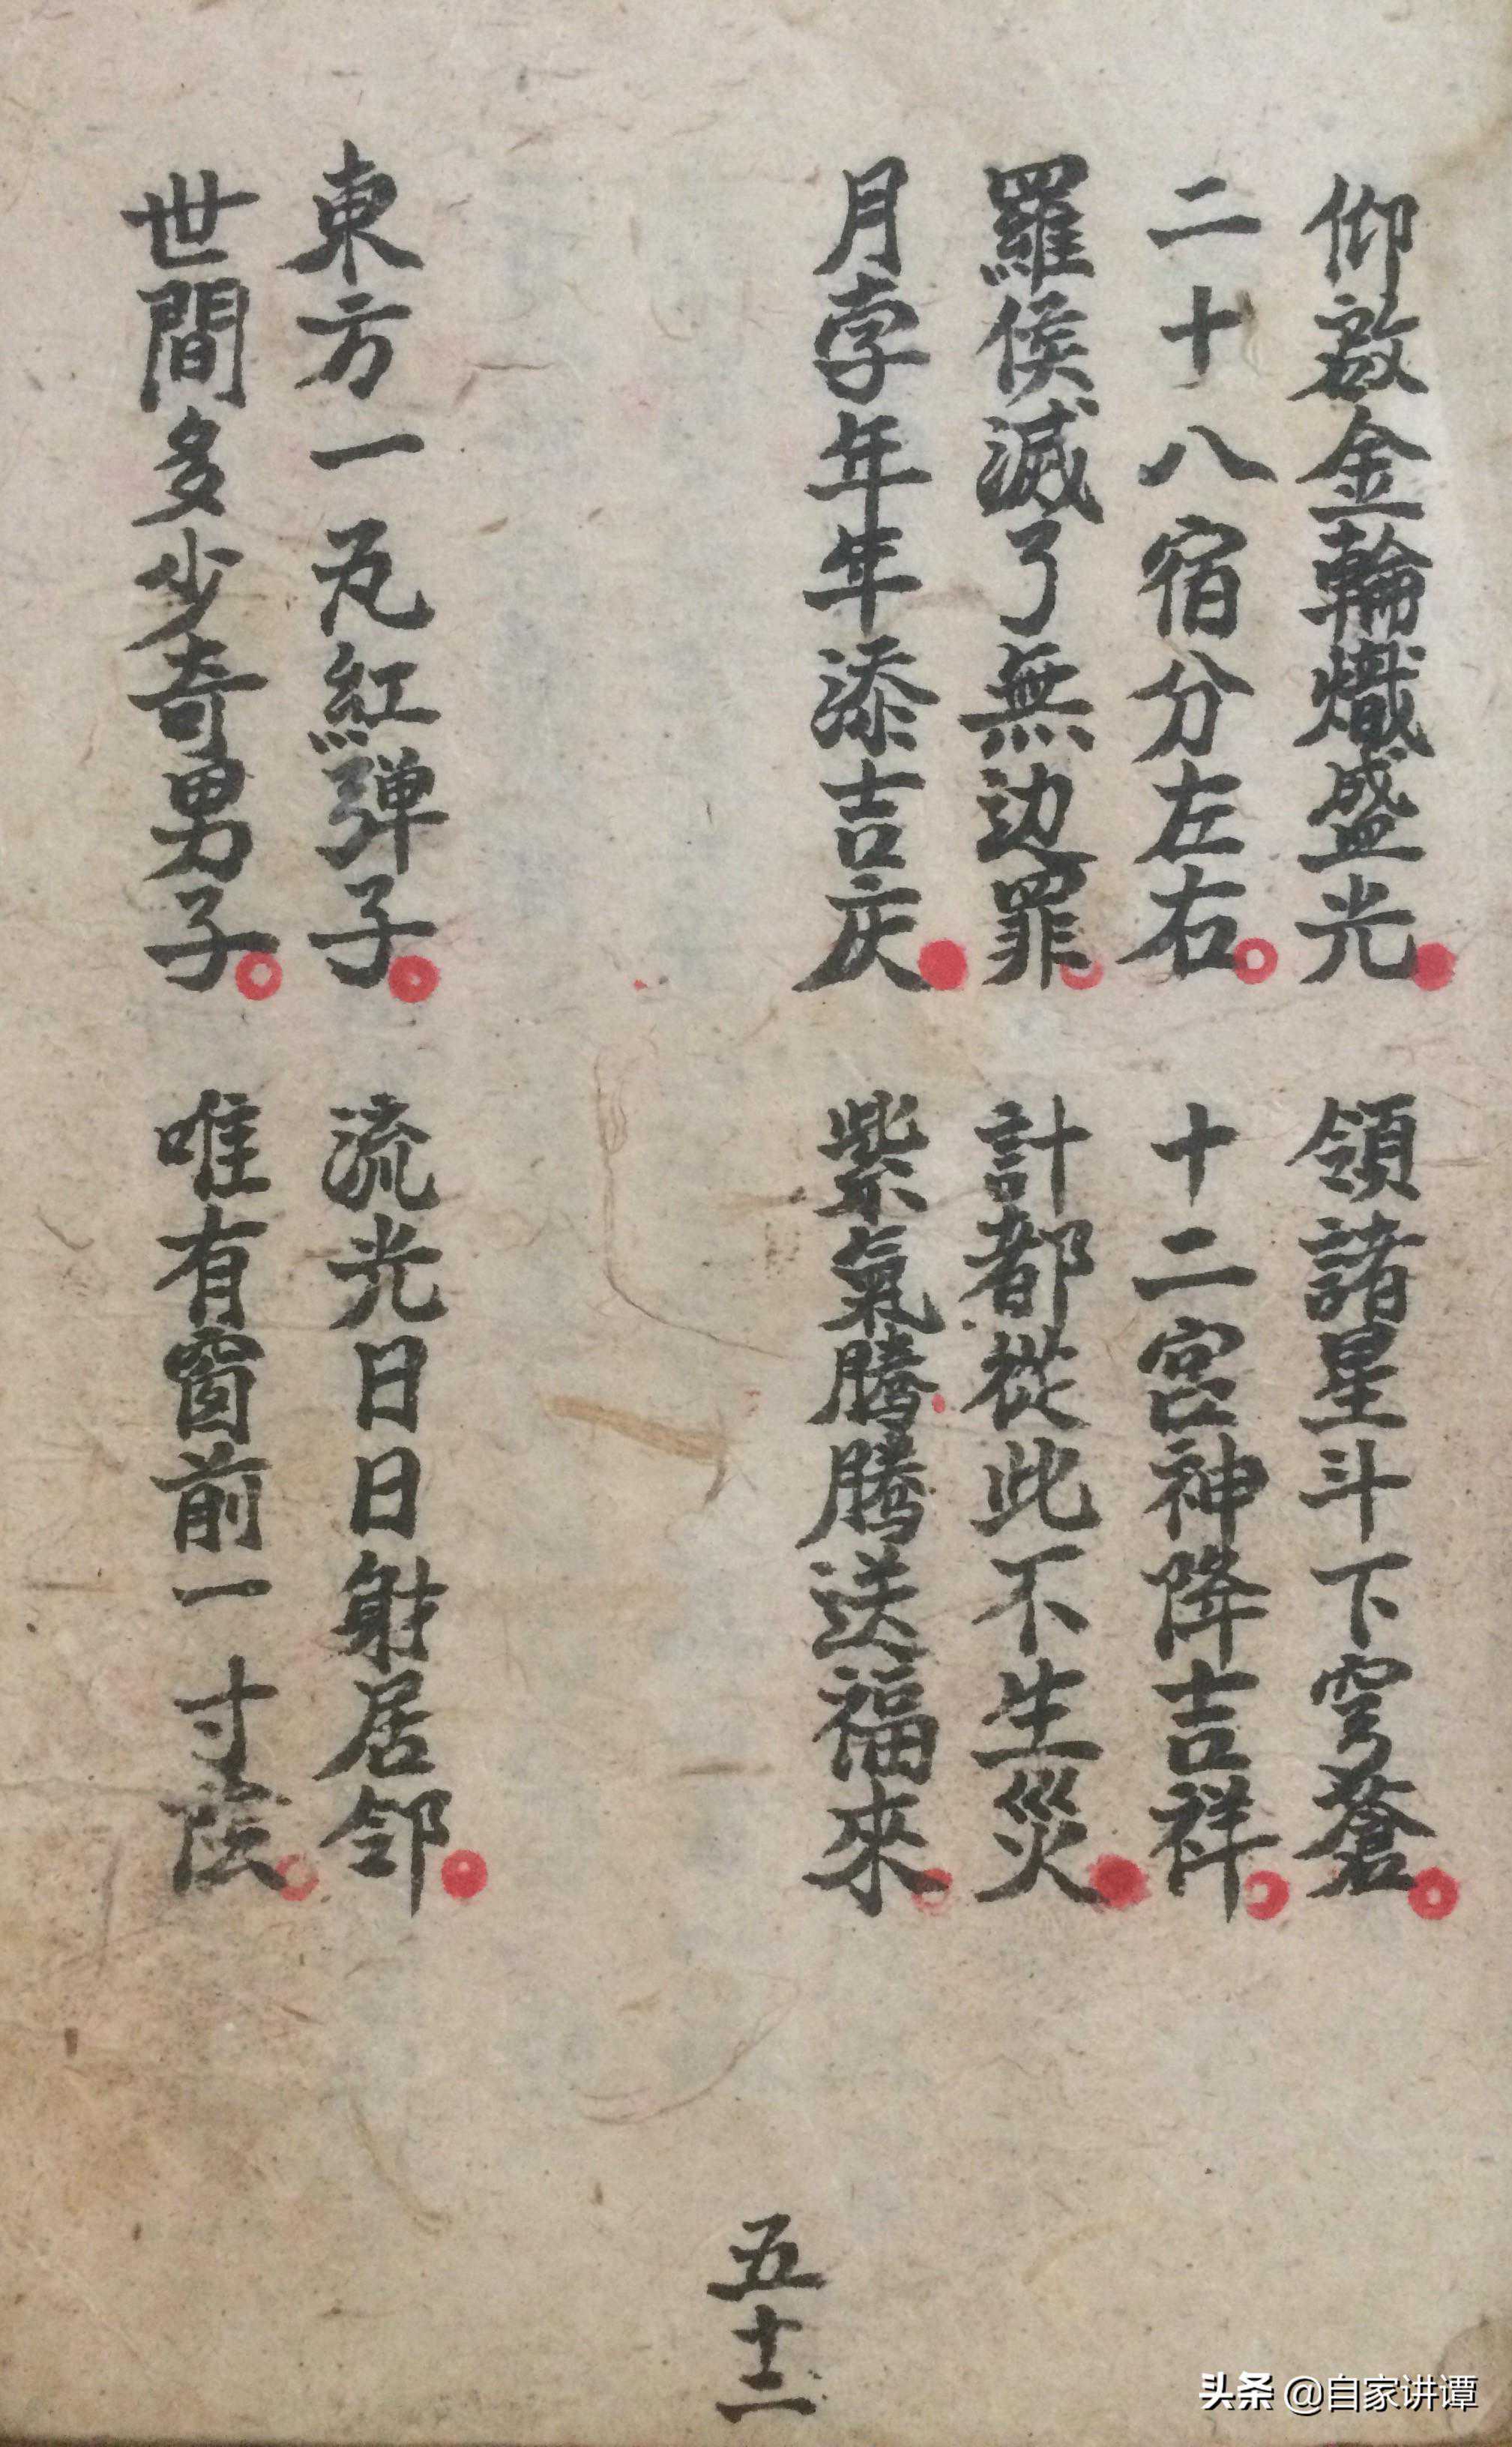 仰啟金輪熾盛光 領諸星斗下穹蒼
二十八宿分左右 十二宮神降吉祥
羅侯滅了無边罪 計都從此不生災
月孛年年添吉庆 紫氣騰騰送福來
東方一升紅弹子 流光日日射居邻
世間多少奇男子 唯有窗前一寸陰
五十二
头条 @自家讲谭